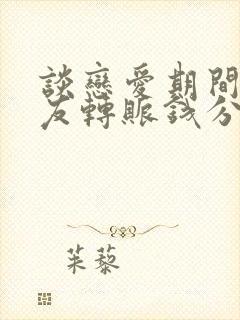 談戀愛期間
友轉賬錢分
茱藜